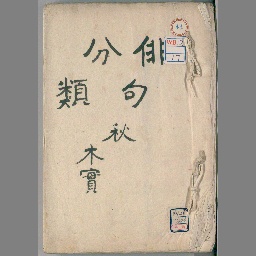 俳句
分類
秋
木實